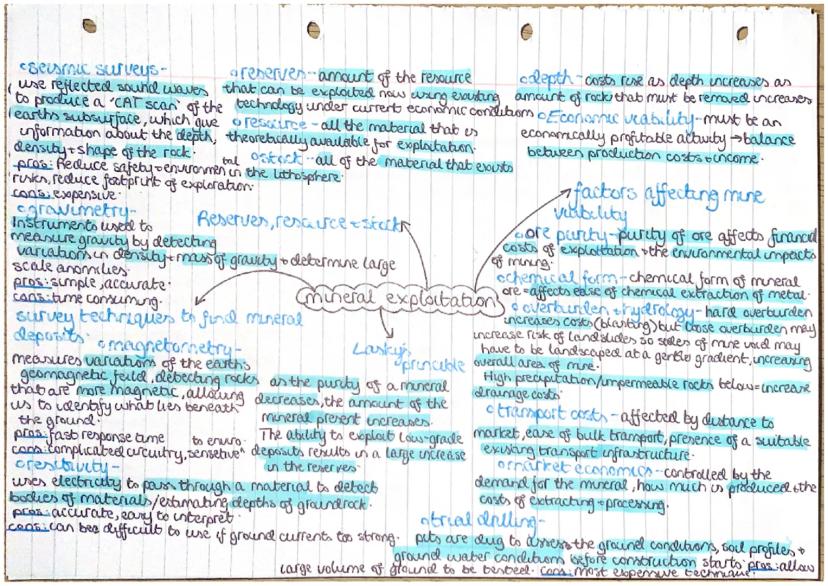 seismic surveys-
use reflected sound waves
to produce a 'CAT scan' of the
earths subsurface, which give
information about the depth,
density + shape of the rock.
pros: Reduce safety + environmental
risks, reduce footprint of exploration.
cons: expensive.
gravimetry-
Instruments used to
measure gravity by detecting
variations in density + mass of gravity + determine large
scale anomilies.
pros: simple, accurate.
cons: time consuming.
survey techniques to find mineral
deposits.
magnetometry-
measures variations of the earths
geomagnetic feild, detecting rocks
that are more magnetic, allowing
us to identify what lies beneath
the ground.
pros: fast response time
cons: complicated circuitry, sensetive to enviro.
resistivity-
uses electricity to pass through a material to detect
bodies of materials/estimating depths of groundrock.
pros: accurate, easy to interpret.
cons: can bee difficult to use if ground currents too strong.
reserves- amount of the resource
that can be exploited now using existing
technology under current economic conditions
resource- all the material that is
theoretically available for exploitation.
stock- all of the material that exists
in the lithosphere.
Reserves, resource + stock
mineral exploitation
Lasky's
principle
as the purity of a mineral
decreases, the amount of the
mineral present increases.
The ability to exploit low-grade
deposits results in a large increase
in the reserves.
depth- costs rise as depth increases as
amount of rock that must be removed increases
Economic viability- must be an
economically profitable activity → balance
between production costs + income.
factors affecting mine
viability
ore purity- purity of ore affects financial
costs of exploitation + the environmental impacts
of mining.
chemical form- chemical form of mineral
ore = affects ease of chemical extraction of metal.
overburden + hydrology- hard overburden
increases costs (blasting) but loose overburden may
increase risk of landslides so sides of mine void may
have to be landscaped at a gentle gradient, increasing
overall area of mine.
High precipitation/impermeable rocks below = increase
drainage costs.
transport costs- affected by distance to
market, ease of bulk transport, presence of a suitable
existing transport infrastructure.
market economics- controlled by the
demand for the mineral, how much is produced + the
costs of extracting + processing.
trial drilling-
pits are dug to assess the ground conditions, soil profiles +
ground water conditions before construction starts. pros: allow
large volume of ground to be tested. cons: most expensive technique.